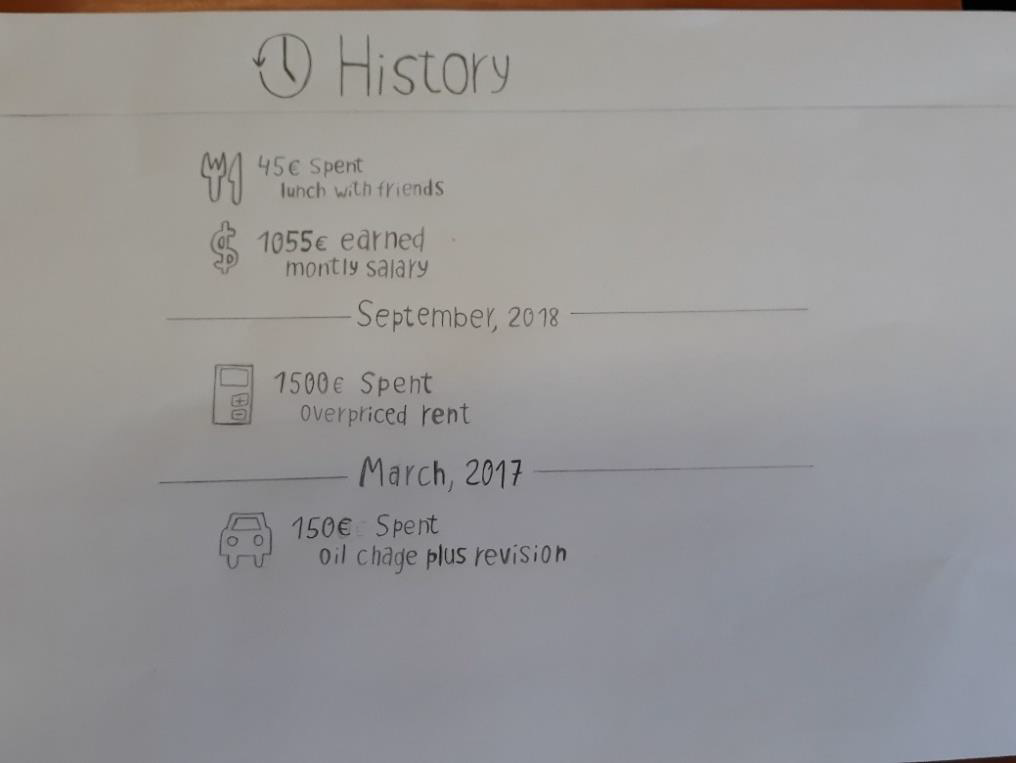 History
45€ Spent
lunch with friends
1055€ earned
montly salary
September, 2018
1500€ Spent
overpriced rent
March, 2017
150€ Spent
oil chage plus revision